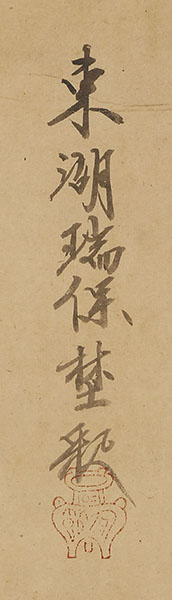 東湖瑞保埜釈